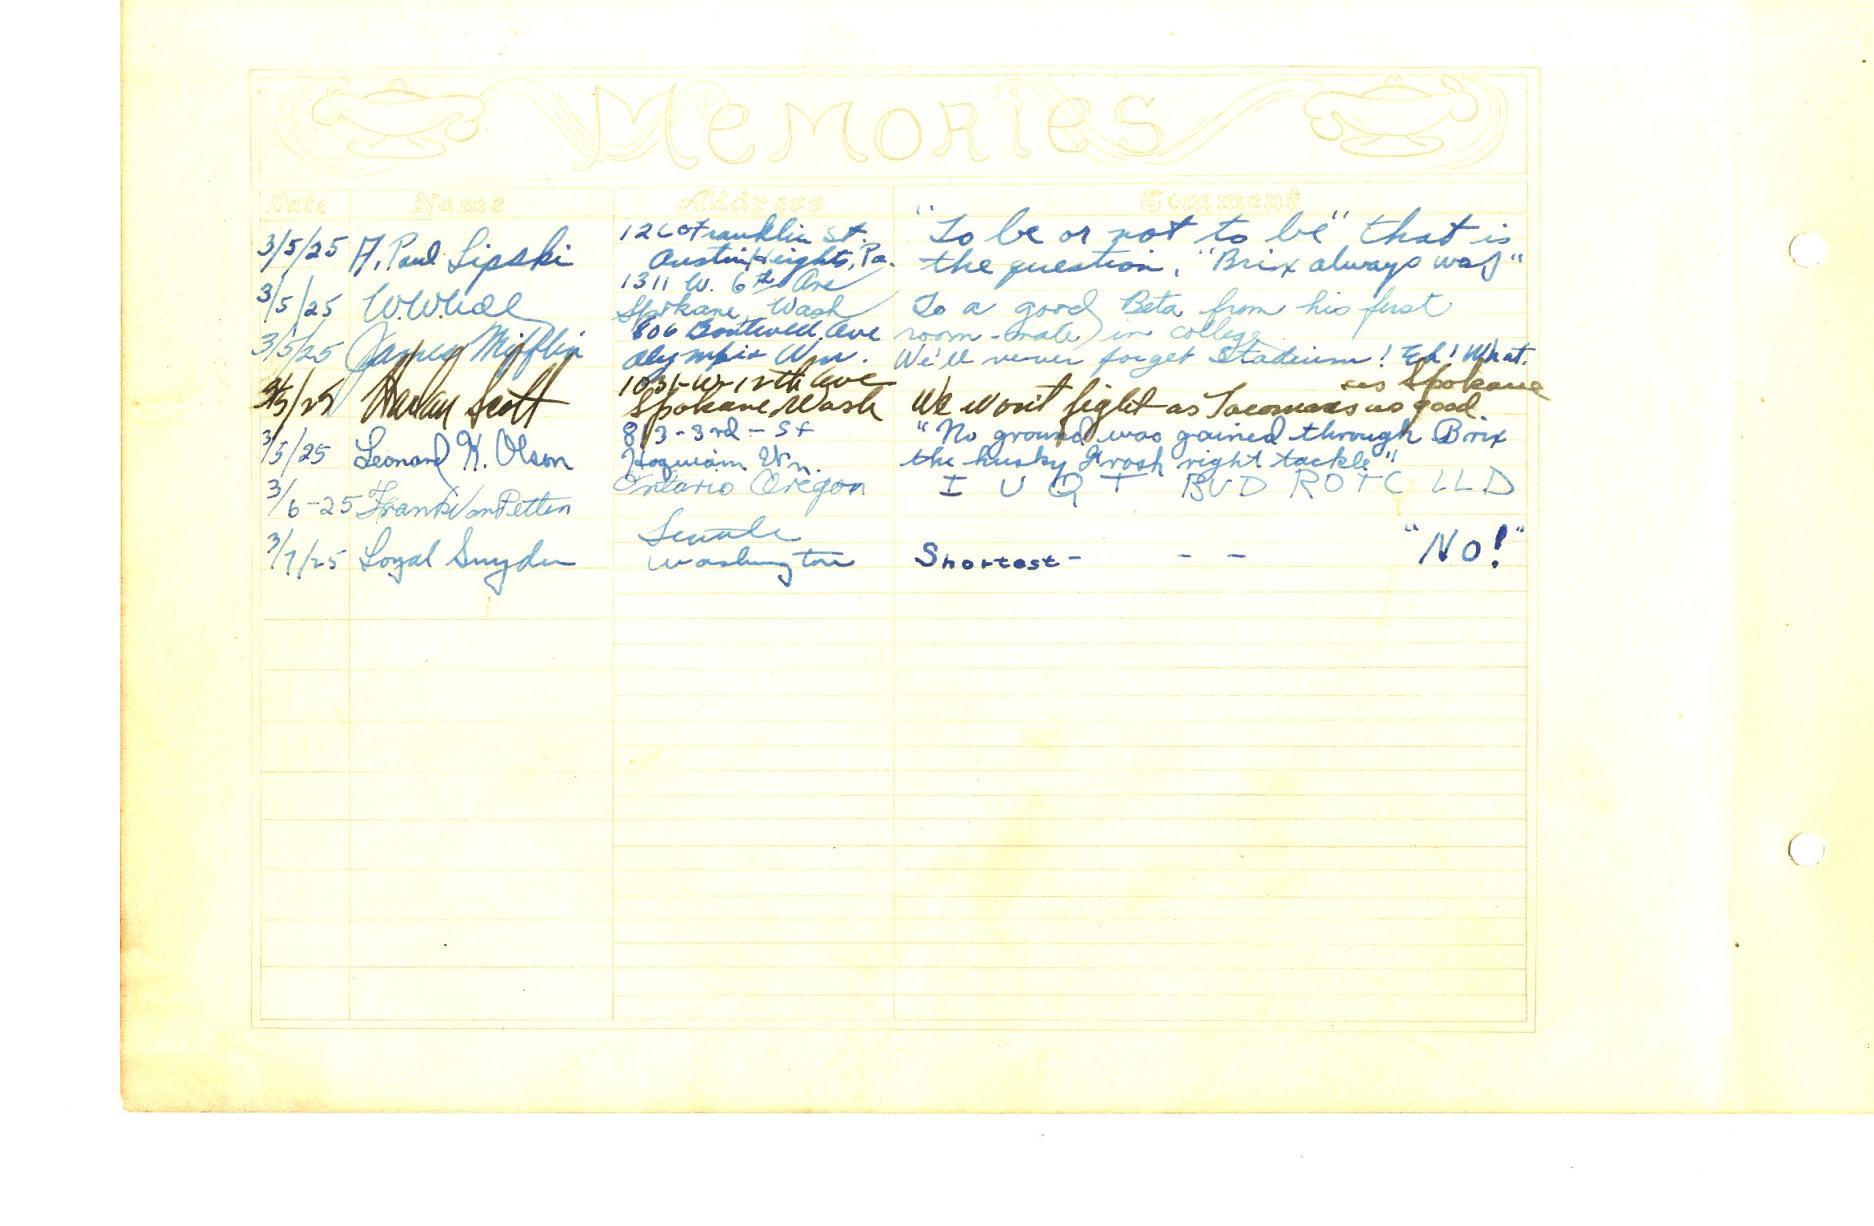 MEMORIES
Date Name Address Comment
3/5/25 A. Paul Lipski 1260 Franklin St. "To be or not to be" that is
Austin Heights, Pa. the question, "Brix always was"
3/5/25 1311 W. 6th Ave
Spokane, Wash To a good Beta from his first
room-mate in college
3/5/25 James Mifflin 806 Ave
Olympia Wn. We'll never forget Stadium! Eh! What.
3/5/25 Harlan Scott W- 12th Ave as Spokane
Spokane, Wash We won't fight - as Tacoma is as good
3/5/25 Leonard H. Olson 813-3rd-St "No ground was gained through Brix
Hoquiam Wn. the husky Frosh right tackle"
3/6-25 Frank VanPetten Ontario Oregon I U Q T BVD ROTC LLD
3/7/25 Loyal Snyder Seattle
Washington Shortest - - - "No!"